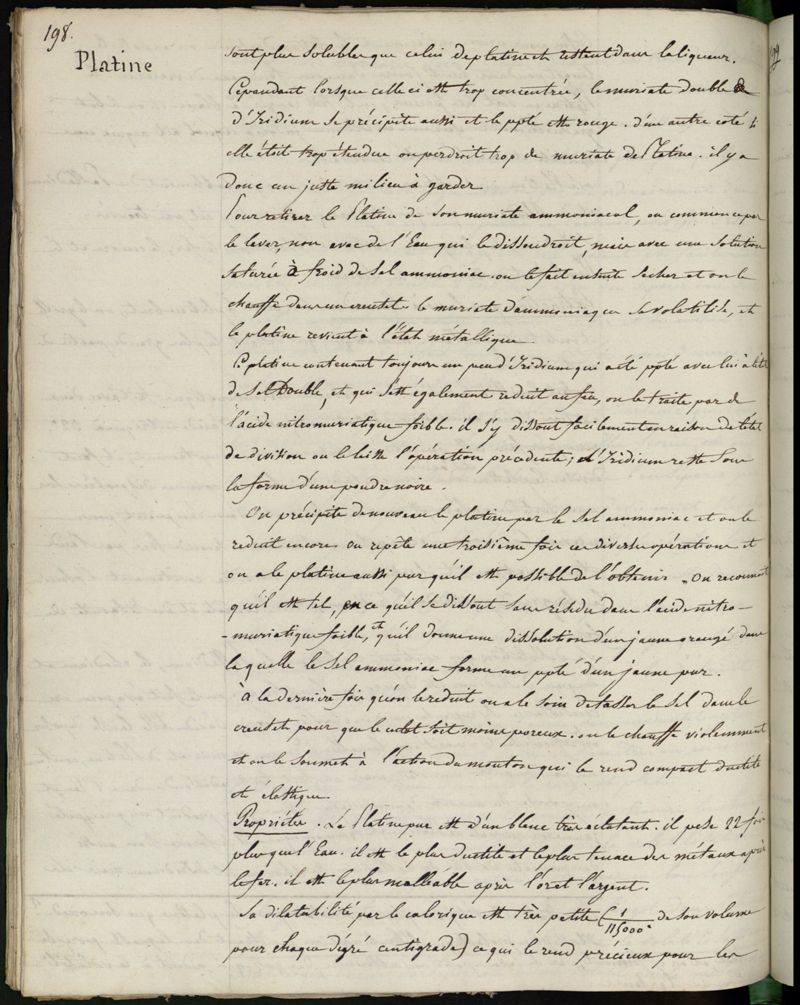 198.
Platine
sont plus solubles que celui de platine et restent dans la liqueur.
Cependant lorsque celle ci est trop concentrée, le muriate double
d'Iridium se précipite aussi et le ppté est rouge. d'une autre coté si
elle étoit trop étendue on perdroit trop de muriate de Platine. il y a
donc un juste milieu à garder
Pour retirer le Platine de son muriate ammoniacal, on commence par
le laver, non avec de l'Eau qui le dissoudroit, mais avec une solution
saturée à froid de sel ammoniac. on le fait ensuite secher et on le
chauffe dans un creuset le muriate d'ammoniaque se volatilise, et
le platine revient à l'état métallique.
Ce platine contenant toujours un peu d'Iridium qui a été ppté avec lui à l'état
de sel Double, et qui s'est également reduit au feu, on le traite par de
l'acide nitromuriatique foible. il s'y dissout facilement en raison de l'état
de division ou le laisse l'opération précédente; d'Iridium reste sous
la forme d'une poudre noire.
On précipite de nouveau le platine par le sel ammoniac et on le
reduit encore. On repète une troisième fois ces diverses opérations et
on a le platine aussi pur qu'il est possible de l'obtenir. On reconnoit
qu'il est tel, en ce qu'il se dissout sans résidu dans l'acide nitro-
-muriatique foible, et qu'il donne une dissolution d'un jaune orangé dans
laquelle le sel ammoniac forme un ppté d'un jaune pur.
à la dernière fois qu'on le reduit on a le soin de tasser le sel dans le
creuset pour que le culot soit moins poreux. on le chauffe violemment
et on le soumet à l'action du mouton qui le rend compact ductile
et élastique.
Propriétés. Le Platine pur est d'un blanc très éclatant. il pese 22 fois
plus que l'Eau. il est le plus ductile et le plus tenace des métaux après
le fer. il est le plus malléable après l'or et l'argent.
Sa dilatabilité par le calorique est très petite (1/115000e de son volume
pour chaque dégré centigrade) ce qui le rend précieux pour les